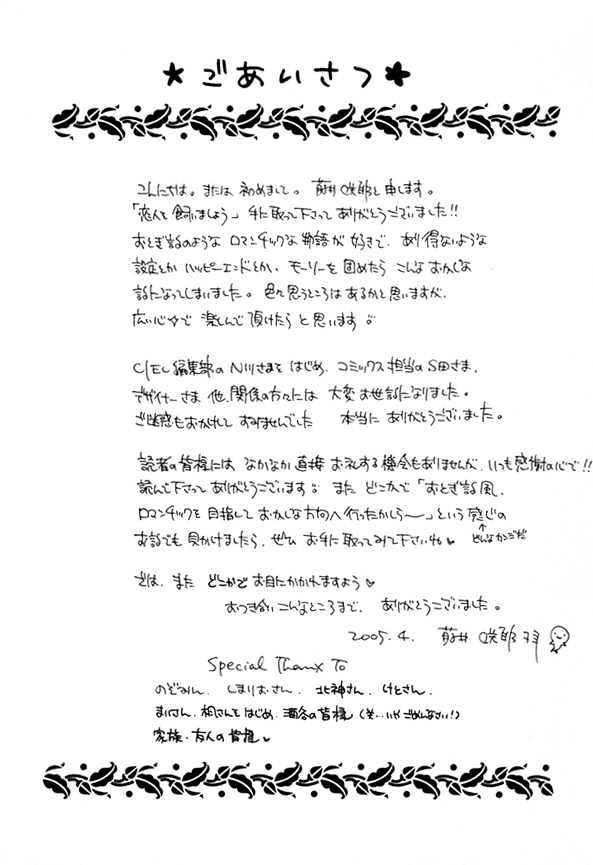 ★ごあいさつ★
こんにちは。または初めまして。藤井咲耶と申します。
「恋人を飼いましょう」手に取って下さってありがとうございました!!
おとぎ話のようなロマンチックな物語が好きで、あり得ないような
設定とかハッピーエンドとか、モーソーを固めたらこんなおかしな
話になってしまいました。色々思うところはあるかと思いますが、
広い心で楽しんで頂けたらと思います。
CIEL編集部のN川さまをはじめ、コミックス担当のS田さま、
デザイナーさま他、関係の方々には大変お世話になりました。
ご迷惑もおかけしてすみませんでした 本当にありがとうございました。
読者の皆様にはなかなか直接お礼する機会もありませんが、いつも感謝の心で!!
読んで下さってありがとうございます。またどこかで「おとぎ話風、
ロマンチックを目指しておかしな方向へ行ったかしら〜」という感じの
お話でも見かけましたら、ぜひお手に取ってみて下さいね♥
↑どんなカンジだ
では、またどこかでお目にかかれますよう♥
おつき合いこんなところまで、ありがとうございました。
2005.4. 藤井咲耶 拝
Special Thanx To
のぞみん、しまりおさん、北神さん、けとさん、
まいさん、相さんをはじめ、の皆様(そ…いやごめんなさい!)
家族・友人の皆様♥